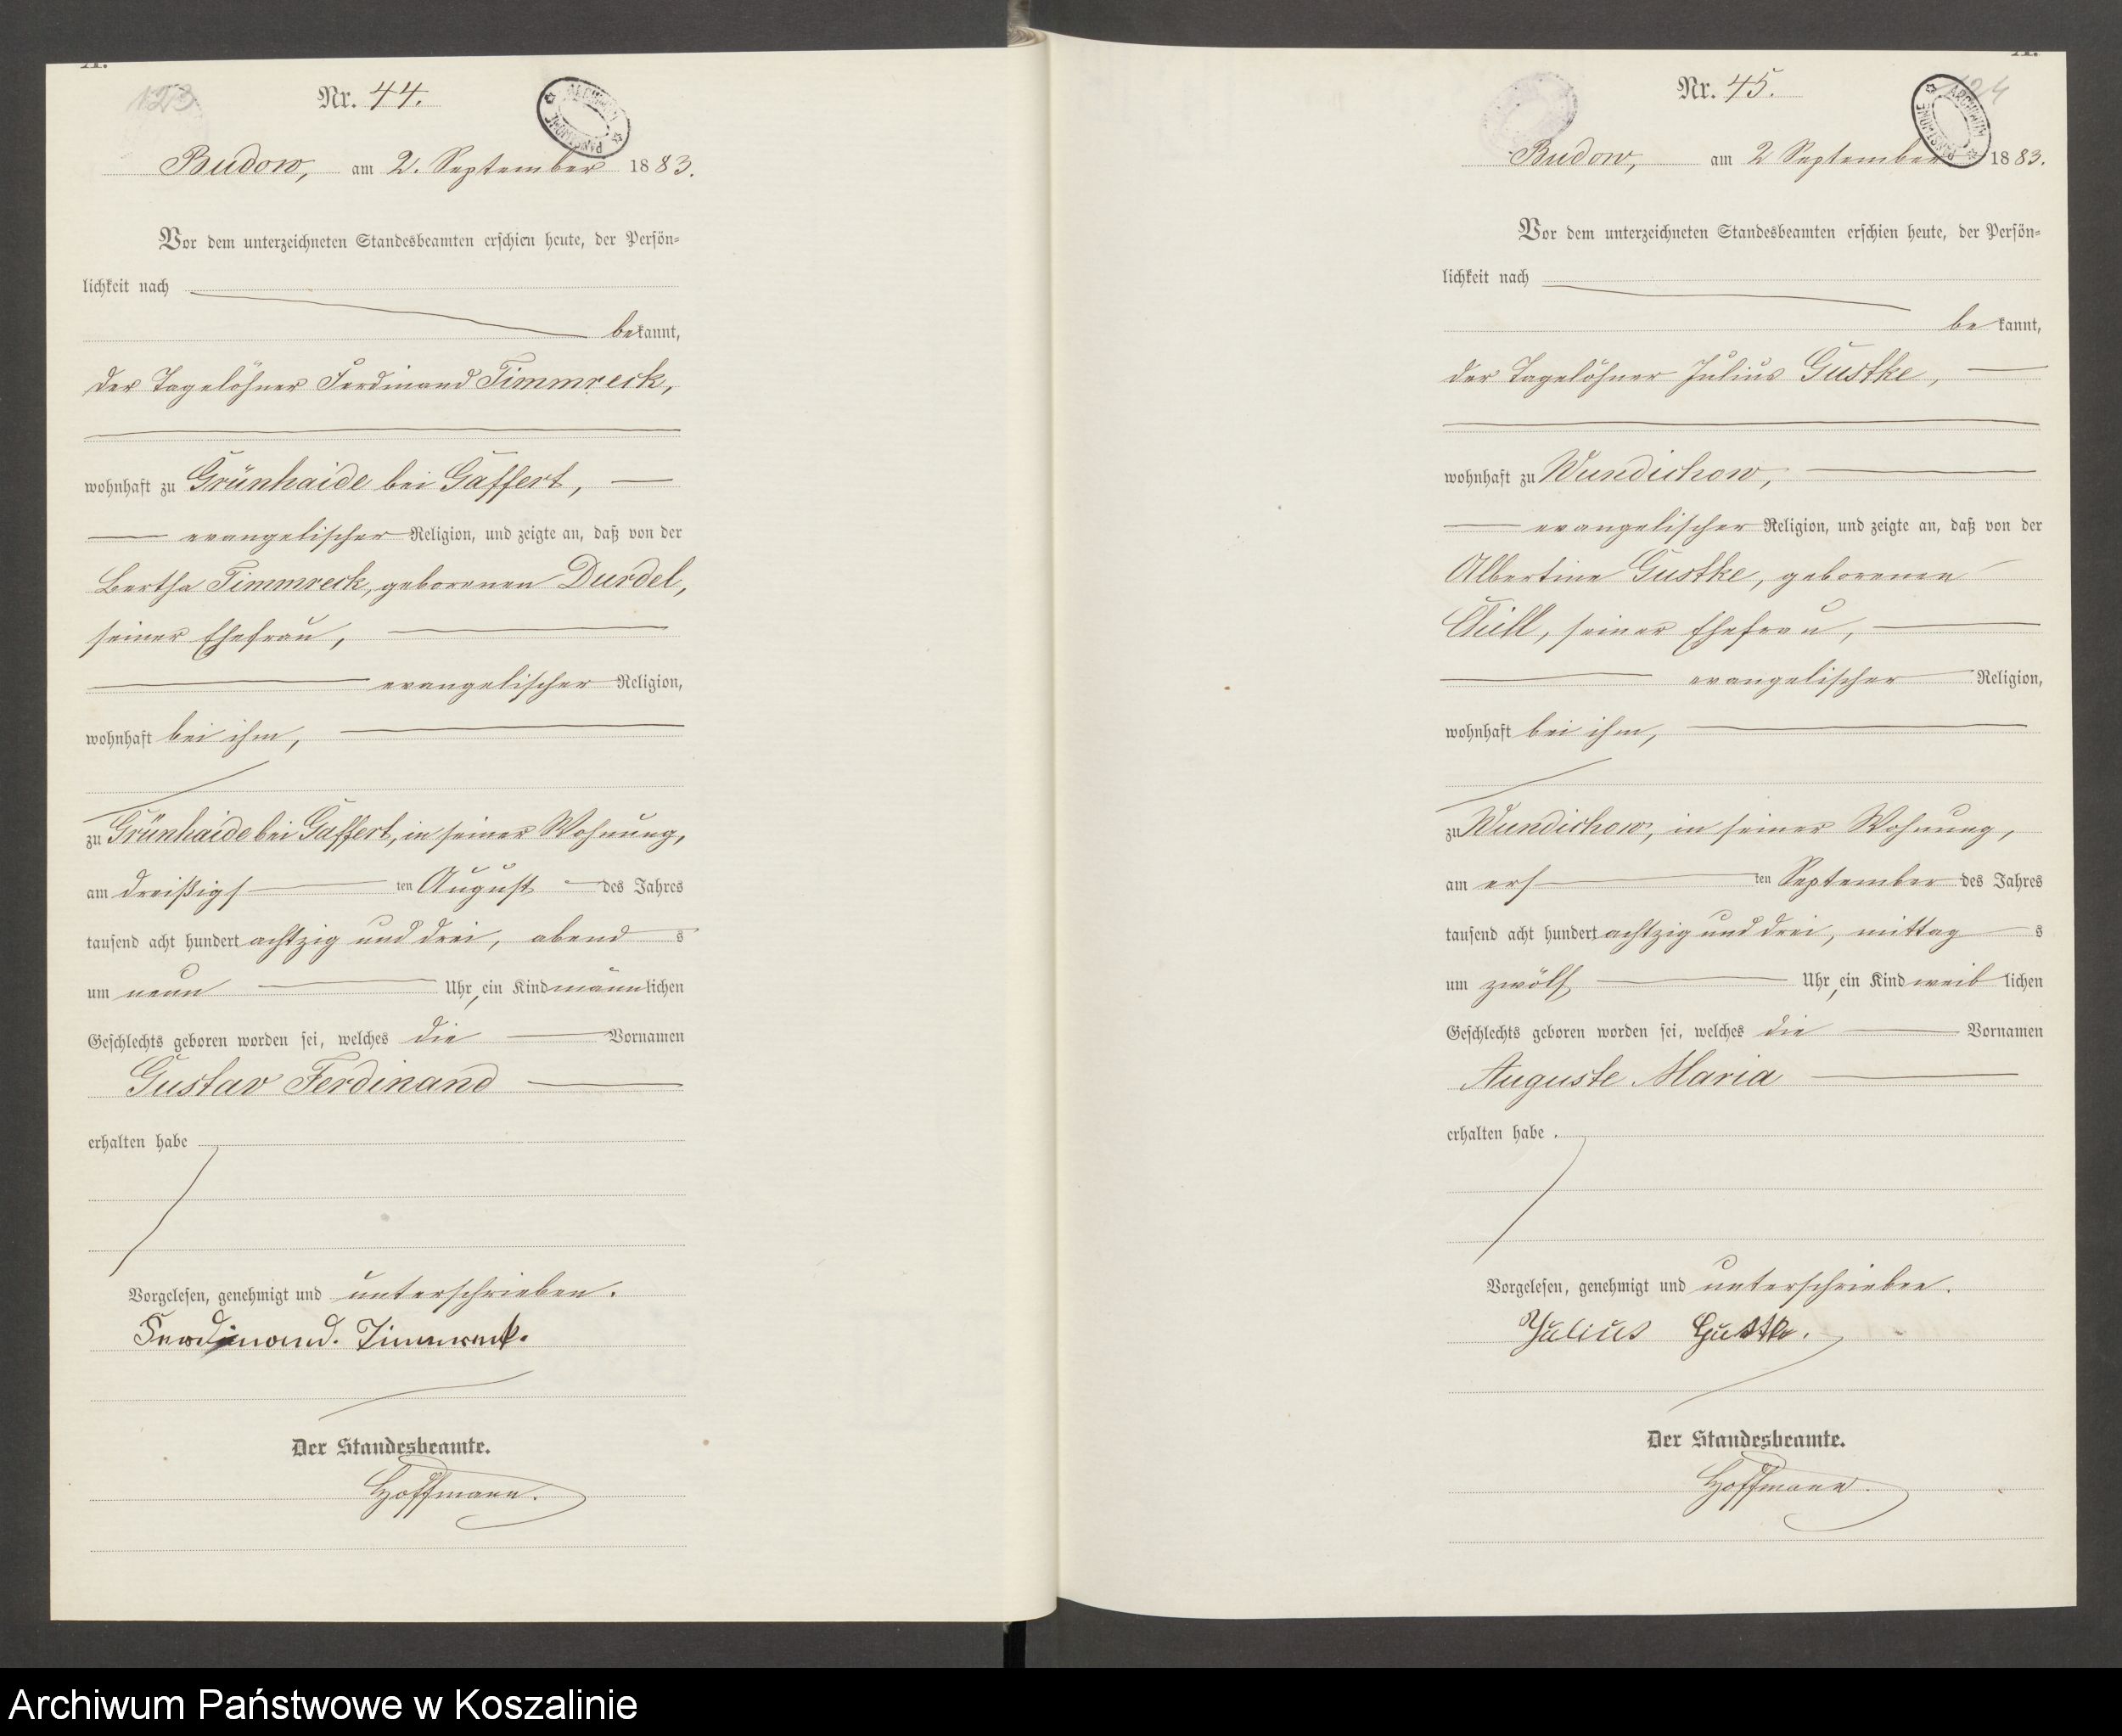 123
Nr. 44.
ARCHIWUM PAŃSTWOWE
Budow, am 2. September 1883.
Vor dem unterzeichneten Standesbeamten erschien heute, der Persön=
lichkeit nach
bekannt,
der Tagelöhner Ferdinand Timmreck,
wohnhaft zu Grünhaide bei Gaffert,
evangelischer Religion, und zeigte an, daß von der
Bertha Timmreck, geborenen Durdel,
seiner Ehefrau,
evangelischer Religion,
wohnhaft bei ihm,
zu Grünhaide bei Gaffert, in seiner Wohnung,
am dreißigsten August des Jahres
tausend acht hundert achtzig und drei, abends
um neun Uhr, ein Kind männlichen
Geschlechts geboren worden sei, welches die Vornamen
Gustav Ferdinand
erhalten habe
Vorgelesen, genehmigt und unterschrieben.
Ferdinand. Timmreck.
Der Standesbeamte.
Hoffmann.
124
Nr. 45.
ARCHIWUM PAŃSTWOWE
Budow, am 2 September 1883.
Vor dem unterzeichneten Standesbeamten erschien heute, der Persön=
lichkeit nach
bekannt,
der Tagelöhner Julius Gustke,
wohnhaft zu Wundichow,
evangelischer Religion, und zeigte an, daß von der
Albertine Gustke, geborenen
seiner Ehefrau,
evangelischer Religion,
wohnhaft bei ihm,
zu Wundichow, in seiner Wohnung,
am ersten September des Jahres
tausend acht hundert achtzig und drei, mittags
um zwölf Uhr, ein Kind weiblichen
Geschlechts geboren worden sei, welches die Vornamen
Auguste Maria
erhalten habe.
Vorgelesen, genehmigt und unterschrieben.
Julius Gustke.
Der Standesbeamte.
Hoffmann.
Archiwum Państwowe w Koszalinie